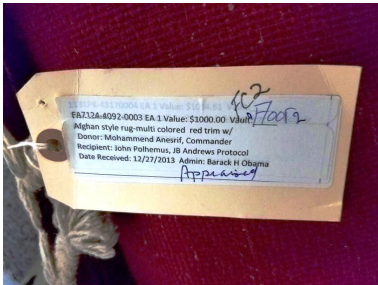 EA 1 Value:
FC2
FA7124-4092-0003 EA 1 Value: $1000.00 Vault: Floor 2
Afghan style rug-multi colored red trim w/
Donor: Mohammend Anesrif, Commander
Recipient: John Polhemus, JB Andrews Protocol
Date Received: 12/27/2013 Admin: Barack H Obama
Appraised